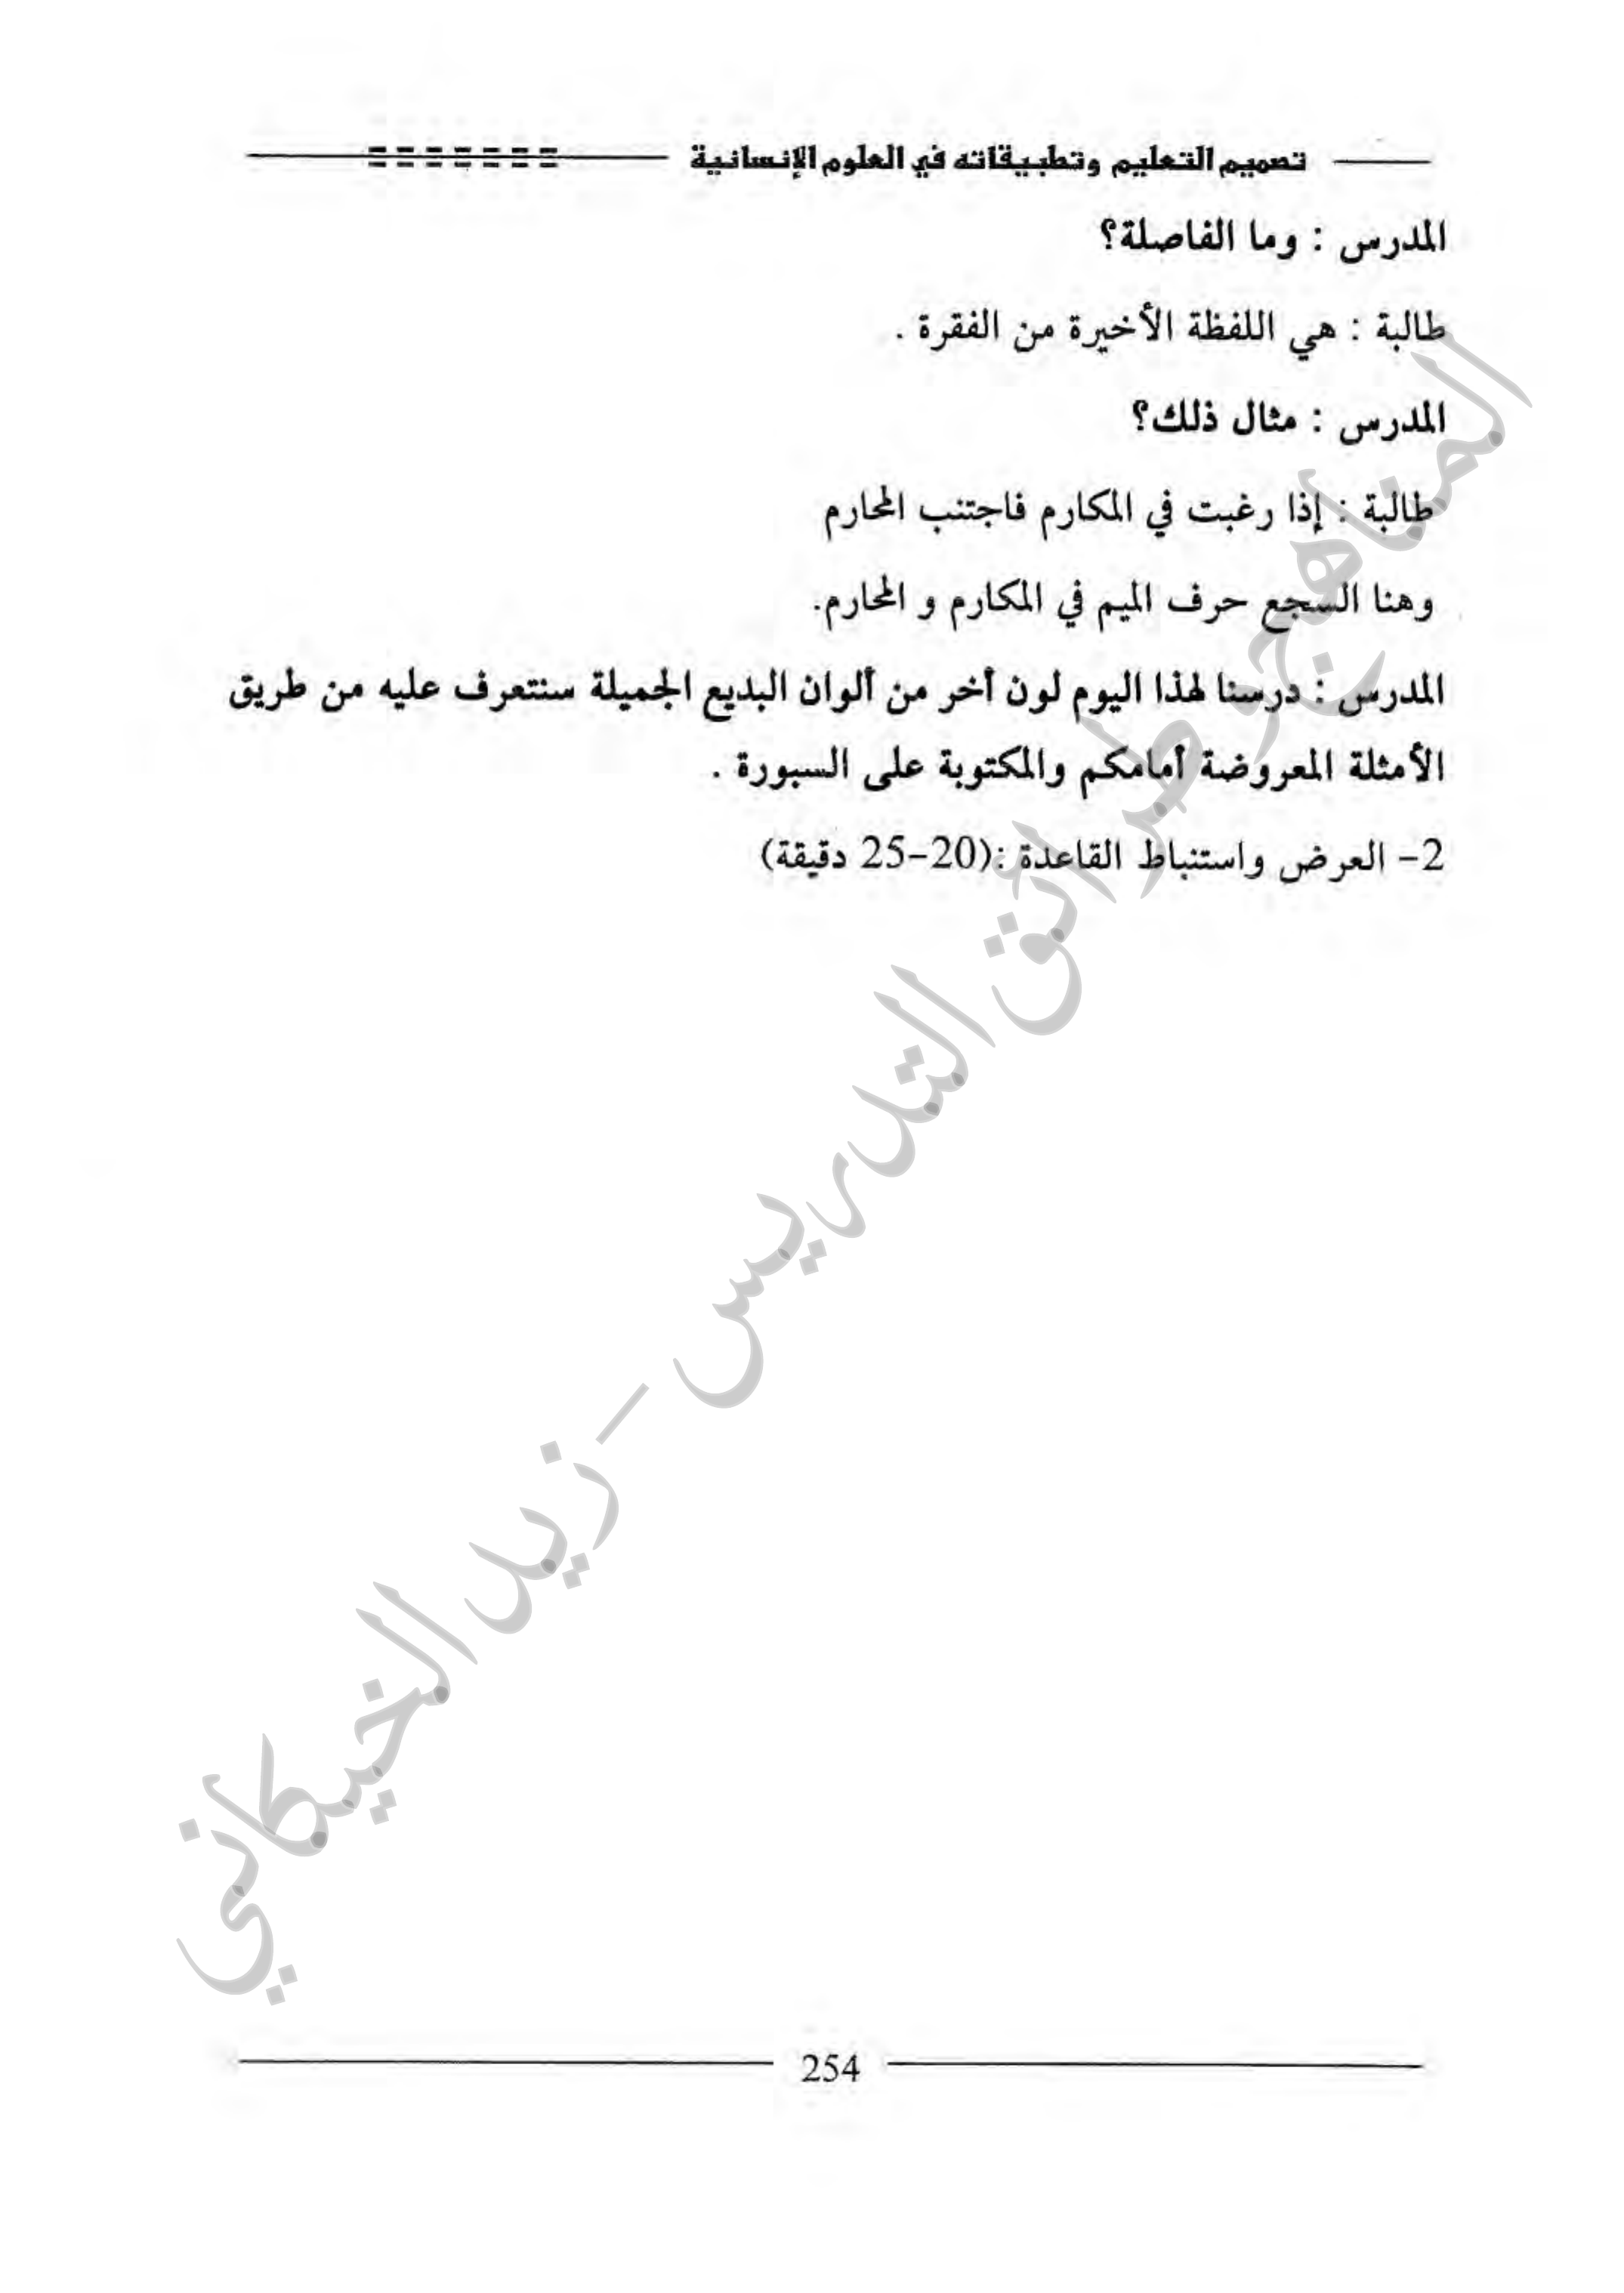 تصميم التعليم وتطبيقاته في العلوم الإنسانية
المدرس : وما الفاصلة؟
طالبة : هي اللفظة الأخيرة من الفقرة .
المدرس : مثال ذلك؟
طالبة : إذا رغبت في المكارم فاجتنب المحارم
وهنا السجع حرف الميم في المكارم و المحارم.
المدرس : درسنا لهذا اليوم لون أخر من ألوان البديع الجميلة سنتعرف عليه من طريق
الأمثلة المعروضة أمامكم والمكتوبة على السبورة .
2- العرض واستنباط القاعدة :(20-25 دقيقة)
المناهج وطرائق التدريس - زيد الخيكاني
254